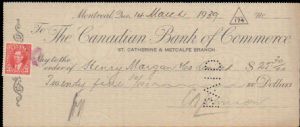 Montreal, Que. 14 March 1939 No
174
To The Canadian Bank of Commerce
ST. CATHERINE & METCALFE BRANCH
Pay to the
order of Henry Morgan Co Limited $25
Twenty five Dollars
PAID